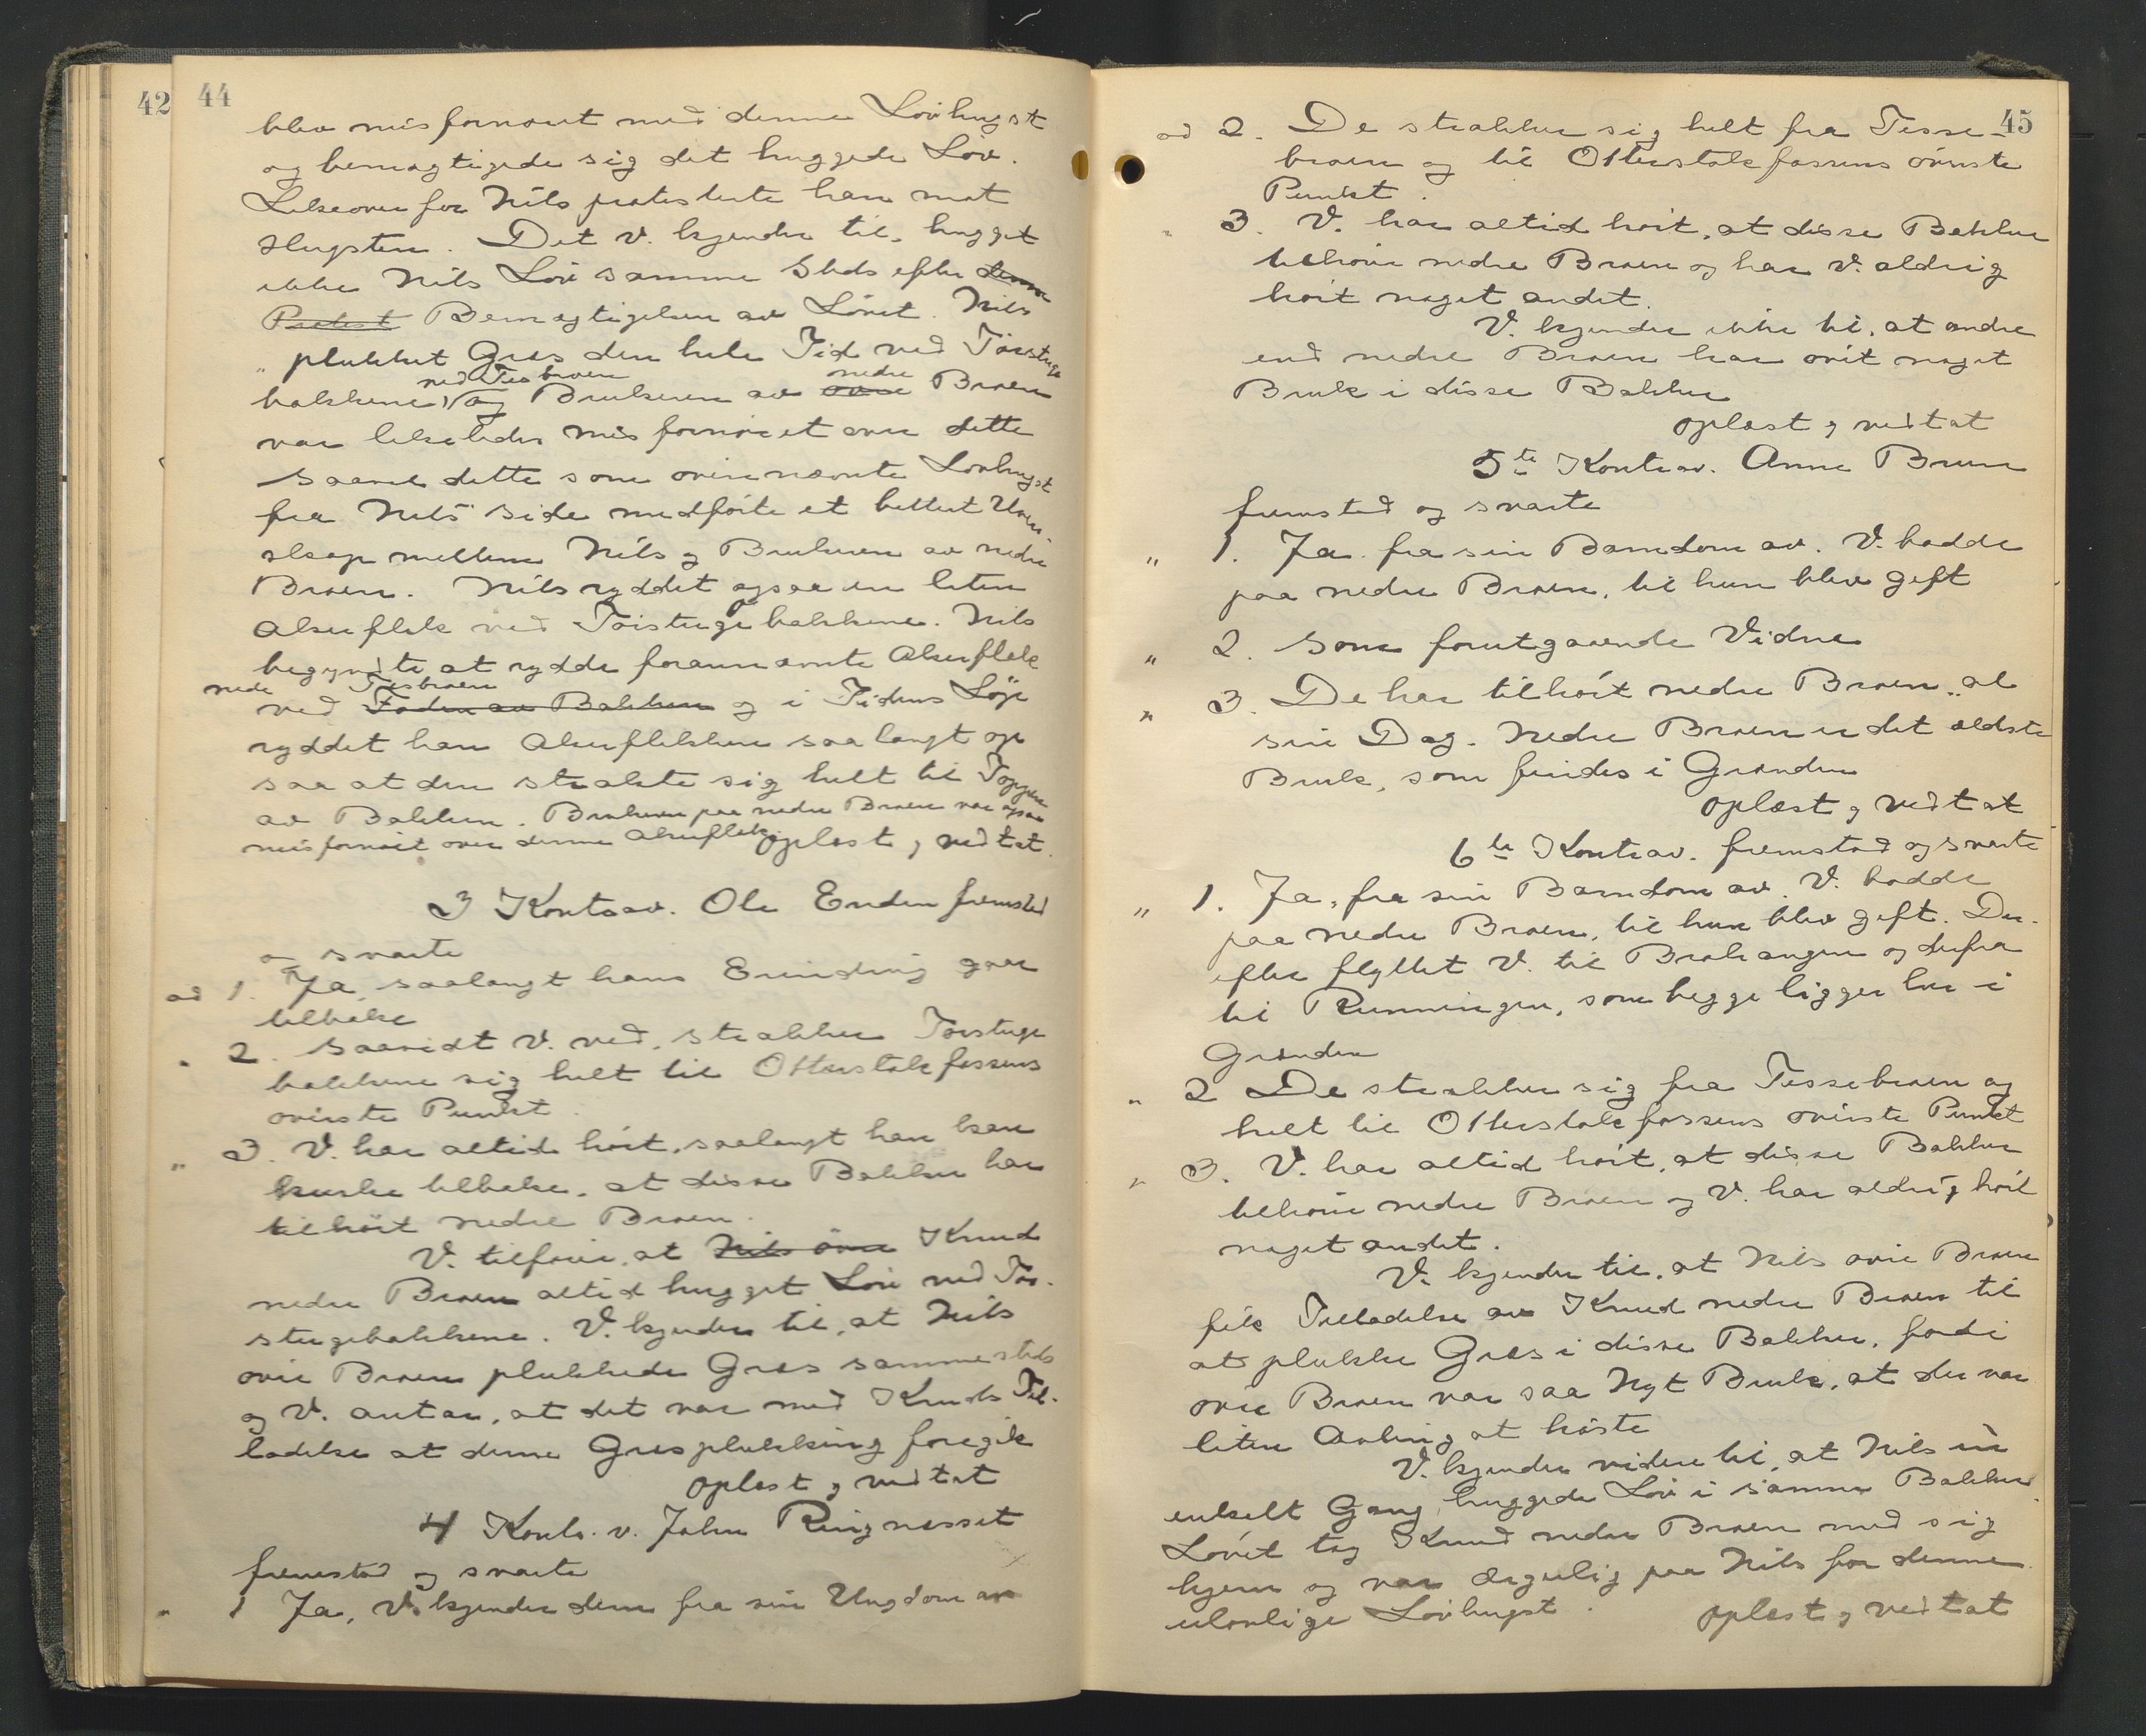 42
44
blev misfornøiet med denne Løvhugst
og bemægtigede sig det huggede Løv.
Likeover for Nils protesterte han mot
Hugsten. Det V. kjender til, hugget
ikke Nils Løv samme Steds efter denne
Protest Bemægtigelsen av Løvet. Nils
" plukket Græs den hele Tid ved Tøistuge
ved Tesbroen nedre
bakkene, og Brukeren av øvre Broen
var likeledes misfornøiet over dette
Saavel dette som ovennævnte Løvhugst
fra Nils' Side medførte et bittert Uven-
skap mellem Nils og Brukeren av nedre
Broen. Nils ryddet ogsaa en liten
Akerflek ved Tøistugebakkene. Nils
begyndte at rydde forannævnte Akerflek
nede Tesbroen
ved Foden av Bakken og i Tidens Løp
ryddet han Akerflekken saa langt op
saa at den strakte sig helt til Toppen
av Bakken. Brukeren paa nedre Broen var ogsaa
misfornøiet over denne Akerflek. Oplæst og vedtat.
3 Kontrav. Ole Enden fremsted
og svarte
ad 1. Ja, saalangt hans Erindring gaar
tilbake
" 2. Saavidt V. ved, strækker Tøistuge
bakkene sig helt til Otterstakfossens
øverste Punkt.
" 3. V. har altid hørt, saalangt han kan
huske tilbake, at disse Bakker har
tilhørt nedre Broen.
V. tilføier, at Nils øvre Knud
nedre Broen altid hugget Løv ved Tøi-
stugebakkene. V. kjender til, at Nils
øvre Broen plukkede Græs sammesteds
og V. antar, at det var med Knuds Til-
ladelse at denne Græsplukking foregik
Oplæst og vedtat
4 Kontr. v. John Ringnesset
fremstod og svarte
" 1 Ja, V. kjender dem fra sin Ungdom av
45
ad 2. De strækker sig helt fra Tesse-
broen og til Otterstakfossens øverste
Punkt.
" 3. V. har altid hørt, at disse Bakker
tilhører nedre Broen og har V. aldrig
hørt noget andet.
V. kjender ikke til, at andre
end nedre Broen har øvet noget
Bruk i disse Bakker
Oplæst og vedtat
5te Kontrav. Anne Brun
fremstod og svarte
" 1. Ja. fra sin Barndom av. V. bodde
paa nedre Broen, til hun blev gift
" 2. Som forutgaaende Vidne
" 3. De har tilhørt nedre Broen al
sin Dag. Nedre Broen er det ældste
Bruk, som findes i Grænden
Oplæst og vedtat
6te Kontrav. fremstod og svarte
" 1. Ja, fra sin Barndom av. V. bodde
paa nedre Broen, til hun blev gift. Der-
efter flyttet V. til Brakangen og derfra
til Runningen, som begge ligger her i
Grænden
" 2 De strækker sig fra Tessebroen og
helt til Otterstakfossens øverste Punkt
" 3. V. har altid hørt, at disse Bakker
tilhører nedre Broen og V. har aldrig hørt
noget andet.
V. kjender til, at Nils øvre Broen
fik Tilladelse av Knud nedre Broen til
at plukke Græs i disse Bakker, fordi
øvre Broen var saa Nyt Bruk, at der var
liten Avling at høste
V. kjender videre til, at Nils en
enkelt Gang huggede Løv i samme Bakker.
Løvet tog Knud nedre Broen med sig
hjem og var ærgerlig paa Nils for denne
ulovlige Løvhugst. Oplæst og vedtat